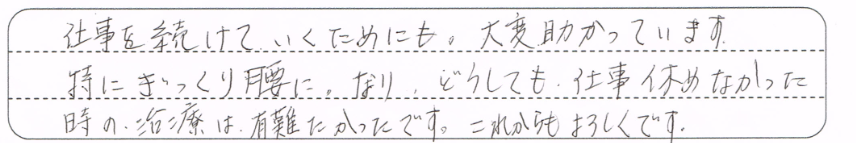 仕事を続けて、いくためにも。大変助かっています
特にぎっくり腰に。なり、どうしても、仕事休めなかった
時の、治療は、有難たかったです。これからもよろしくです。